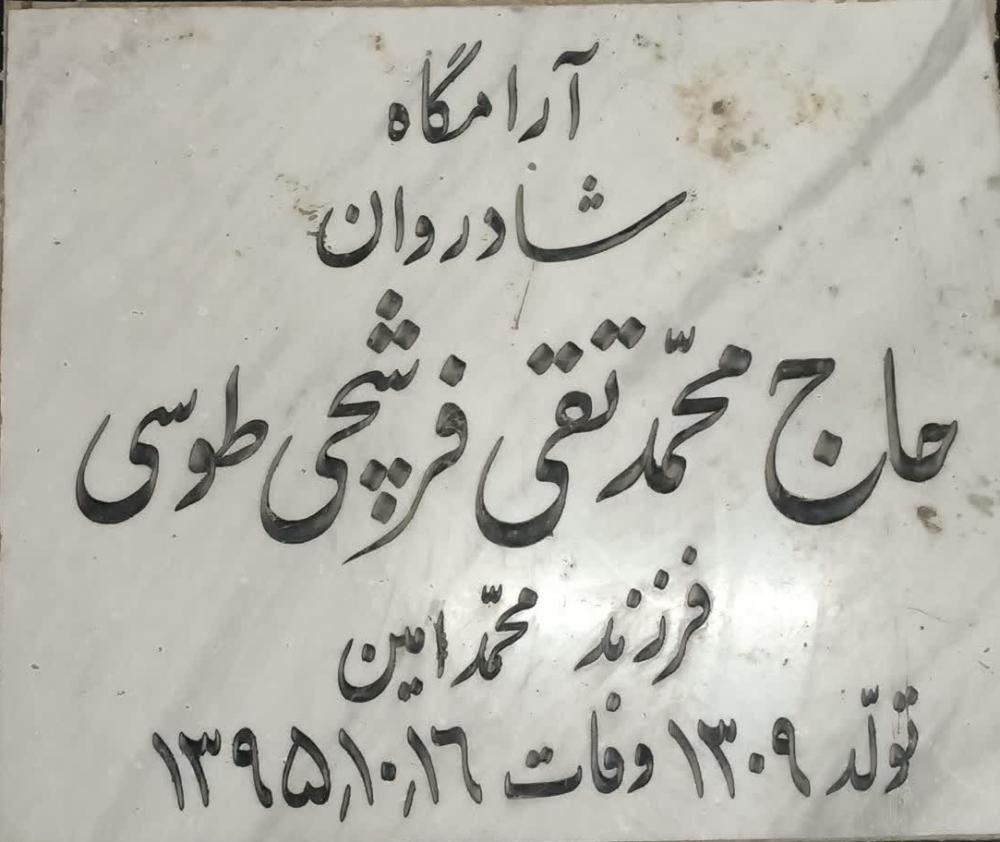 آرامگاه
شادروان
حاج محمّد تقی فرشچی طوسی
فرزند محمّد امین
تولّد ۱۳۰۹ وفات ۱۳۹۵٫۱۰٫۱۶